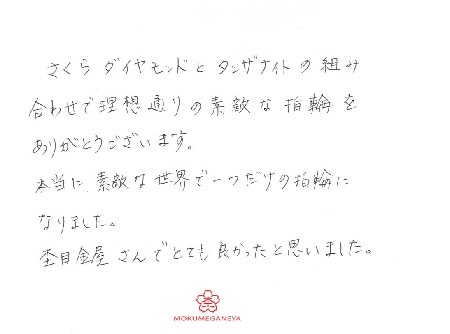 さくらダイヤモンドとタンザナイトの組み
合わせで理想通りの素敵な指輪を
ありがとうございます。
本当に素敵な世界で一つだけの指輪に
なりました。
杢目金屋さんでとても良かったと思いました。
MOKUMEGANEYA